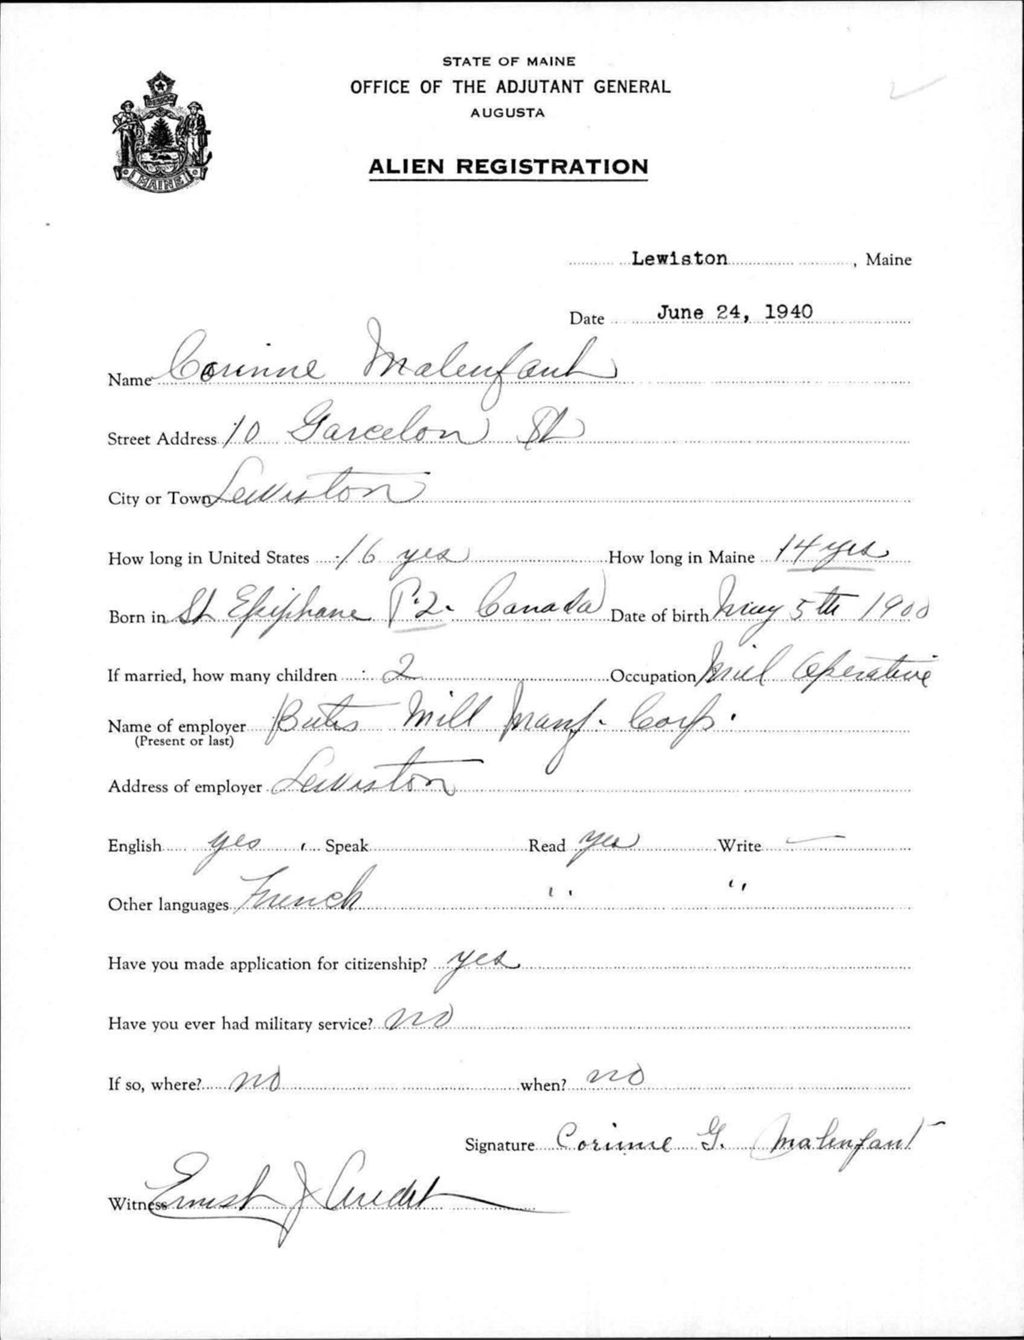 STATE OF MAINE
OFFICE OF THE ADJUTANT GENERAL
AUGUSTA
ALIEN REGISTRATION
MAINE
Lewiston, Maine
Date June 24, 1940
Name Corinne Malenfant
Street Address 10 Garcelon St
City or Town Lewiston
How long in United States 16 yrs How long in Maine 14 yrs
Born in St Epiphane P.2. Canada Date of birth May 5th 1900
If married, how many children 2 Occupation Mill Operative
Name of employer Bates Mill Manf. Corp.
(Present or last)
Address of employer Lewiston
English yes, Speak Read yes Write —
Other languages French " "
Have you made application for citizenship? yes
Have you ever had military service? no
If so, where? no when? no
Signature Corinne G. Malenfant
Witness Ernest J Audet